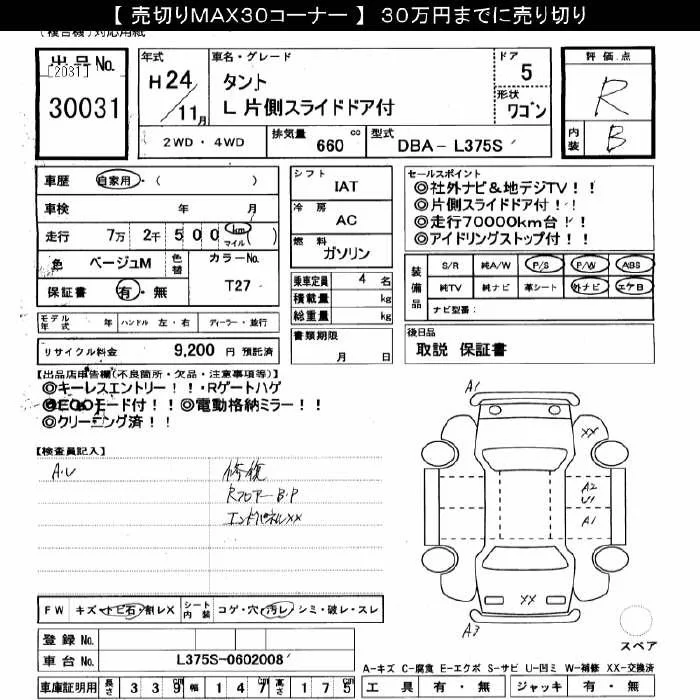 【 売切りMAX30コーナー 】 30万円までに売り切り
(複合機)対応用紙
出品No.
[2031]
30031
年式
H24/11月
車名・グレード
タント
L 片側スライドドア付
ドア
5
形状
ワゴン
評価点
R
内装
B
2WD・4WD
排気量 660 cc
型式 DBA- L375S
車歴 自家用・( )
車検 年 月
走行 7万 2千 500 km マイル ( )
色 ベージュM
色替
カラーNo.
T27
保証書 有・無
シフト
IAT
冷房
AC
燃料
ガソリン
乗車定員 4 名
積載量 kg
総重量 kg
書類期限
月 日
セールスポイント
◎社外ナビ&地デジTV！！
◎片側スライドドア付！！
◎走行70000km台！！
◎アイドリングストップ付！！
装備品
S/R 純A/W P/S P/W ABS
純TV 純ナビ 革シート 外ナビ エアB
ナビ型番:
モデル年式 年 ハンドル 左・右 ディーラー・並行
リサイクル料金 9,200 円 預託済
後日品
取説 保証書
【出品店申告欄(不良箇所・欠品・注意事項等)】
◎キーレスエントリー！！・Rゲートハゲ
◎ECOモード付！！◎電動格納ミラー！！
◎クリーニング済！！
【検査員記入】
A.U
修復
Rフロアー B.P
エンドパネルXX
A1
XX
A2
U1
A1
XX
A3
スペア
FW キズ・トビ石・割レX
シート内装 コゲ・穴・汚レ・シミ・破レ・スレ
登録 No.
車台 No. L375S-0602008
車庫証明用 長さ 339cm 幅 147cm 高さ 175cm
A-キズ C-腐食 E-エクボ S-サビ U-凹ミ W-補修 XX-交換済
工具 有・無 ジャッキ 有・無